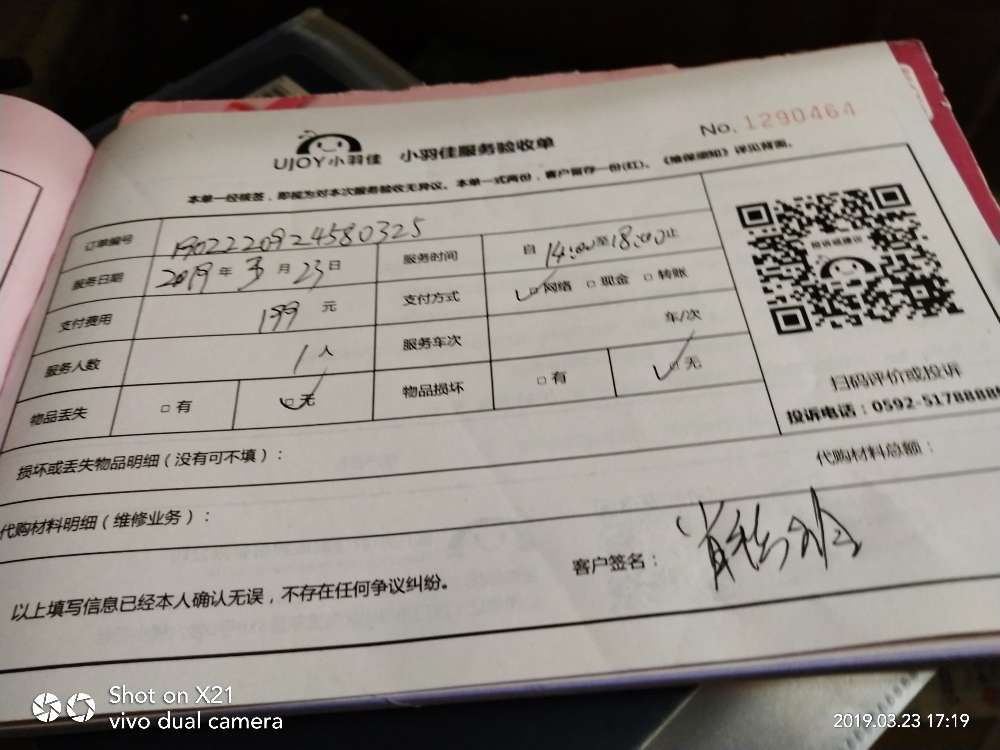 No. 1290464
UJOY小羽佳 小羽佳服务验收单
本单一经核签，即视为对本次服务验收无异议。本单一式两份，客户留存一份(红)。《维保须知》详见背面。
订单编号 1902220924580325 服务时间 自 14:00 至 18:00 止
服务日期 2019 年 3 月 23 日 支付方式 网络 现金 转账
支付费用 199 元 服务车次 车/次
服务人数 1 人 物品损坏 有 无
物品丢失 有 无
扫码评价或投诉
投诉电话：0592-5178888
损坏或丢失物品明细（没有可不填）：
代购材料明细（维修业务）： 代购材料总额：
以上填写信息已经本人确认无误，不存在任何争议纠纷。 客户签名：
Shot on X21
vivo dual camera
2019.03.23 17:19